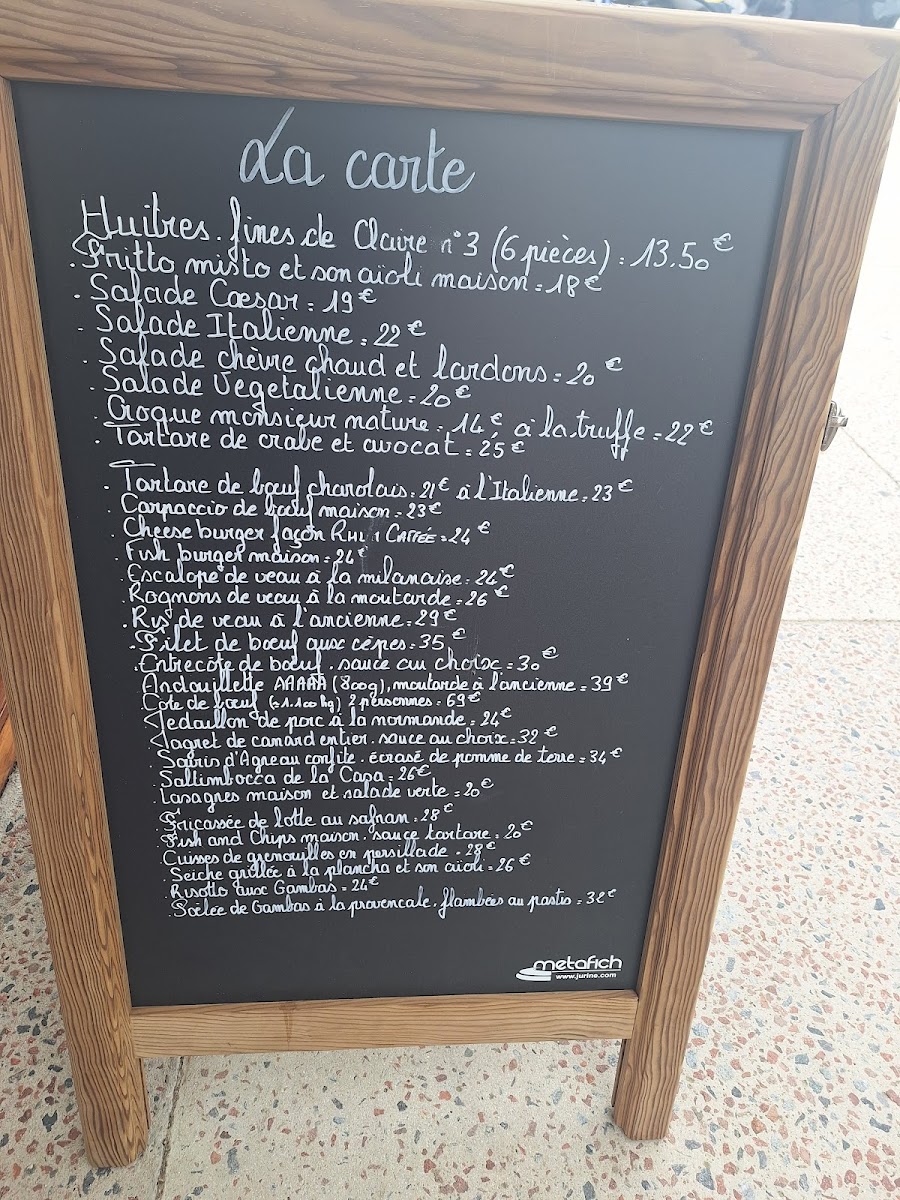 La carte
Huitres. fines de Claire n°3 (6 pièces) = 13.50€
.Fritto misto et son aïoli maison = 18€
. Salade Caesar = 19€
. Salade Italienne = 22€
. Salade chèvre chaud et lardons = 20€
. Salade Vegetalienne = 20€
. Croque monsieur nature = 14€, à la truffe = 22€
. Tartare de crabe et avocat = 25€
. Tartare de bœuf charolais = 21€ à l'Italienne = 23€
. Carpaccio de bœuf maison = 23€
. Cheese burger façon = 24€
. Fish burger maison = 24€
. Escalope de veau à la milanaise = 24€
. Rognons de veau à la moutarde = 26€
. Ris de veau à l'ancienne = 29€
. Filet de bœuf aux cèpes = 35€
. Entrecôte de bœuf. sauce au choix = 30€
. Andouillette AAAAA (800g), moutarde à l'ancienne = 39€
. Côte de bœuf (≃1.100kg) 2 personnes = 69€
. Medaillon de porc à la normande = 24€
. Magret de canard entier. sauce au choix = 32€
. Souris d'Agneau confite. écrasé de pomme de terre = 34€
. Saltimbocca de la Casa = 26€
. Lasagnes maison et salade verte = 20€
. Fricassée de lotte au safran = 28€
. Fish and Chips maison. sauce tartare = 20€
. Cuisses de grenouilles en persillade = 28€
. Seiche grillée à la plancha et son aïoli = 26€
. Risotto aux Gambas = 24€
. Poêlée de Gambas à la provencale. flambées au pastis = 32€
metafich
www.jurine.com